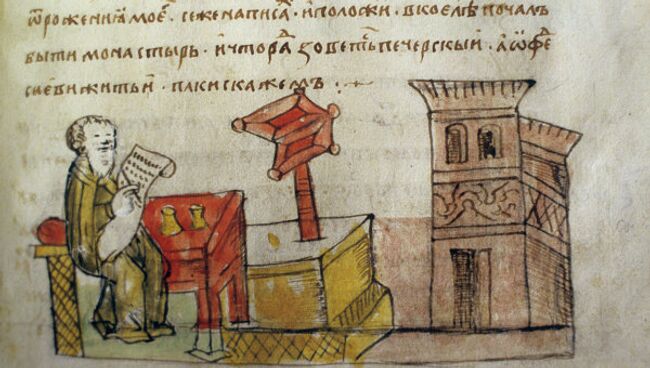 ѿроженииамое҇. се же написа҇. и положи. в кое лѣ почалъ
быти монастырь. и что ра҇ зоветь печерскый. а ѡ фе҇
си еви житьи҇. паки скажемъ :·